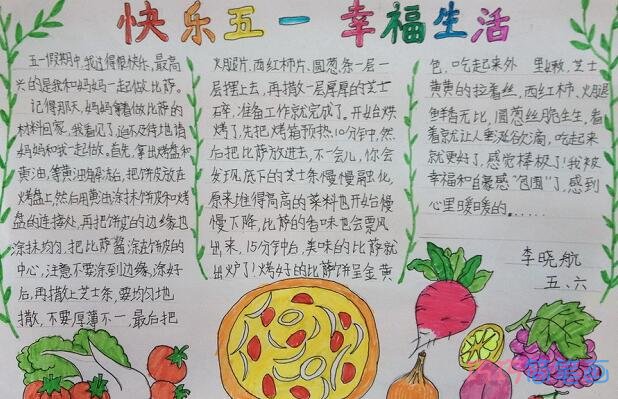 快乐五一 幸福生活
五一假期中,我过得很快乐,最高
兴的是我和妈妈一起做比萨。
记得那天,妈妈拿着做比萨的
材料回家,我看见了,迫不及待地请
妈妈和我一起做。首先,拿出烤盘和
黄油,等黄油融化后,把饼皮放在
烤盘上,然后用黄油涂抹饼皮和烤
盘的连接处,再把饼皮的边缘也
涂抹均匀,把比萨酱涂在饼皮的
中心,注意不要涂到边缘,涂好
后,再撒上芝士条,要均匀地
撒,不要厚薄不一,最后把
火腿片,西红柿片,圆葱条一层一
层摆上去,再撒一层厚厚的芝士
碎,准备工作就完成了。开始烘
烤了,先把烤箱预热10分钟,然
后把比萨放进去,不一会儿,你会
发现底下的芝士条慢慢融化,
原来堆得高高的菜料也开始慢
慢下降,比萨的香味也会飘风
出来,15分钟后,美味的比萨就
出炉了!烤好的比萨饼呈金黄
色,吃起来外 里嫩,芝士
黄黄的拉着丝,西红柿,火腿
鲜香无比,圆葱丝脆生生,看
着就让人垂涎欲滴,吃起来
就更好了,感觉棒极了!我被
幸福和自豪感“包围”了,感到
心里暖暖的......
李晓航
五、六